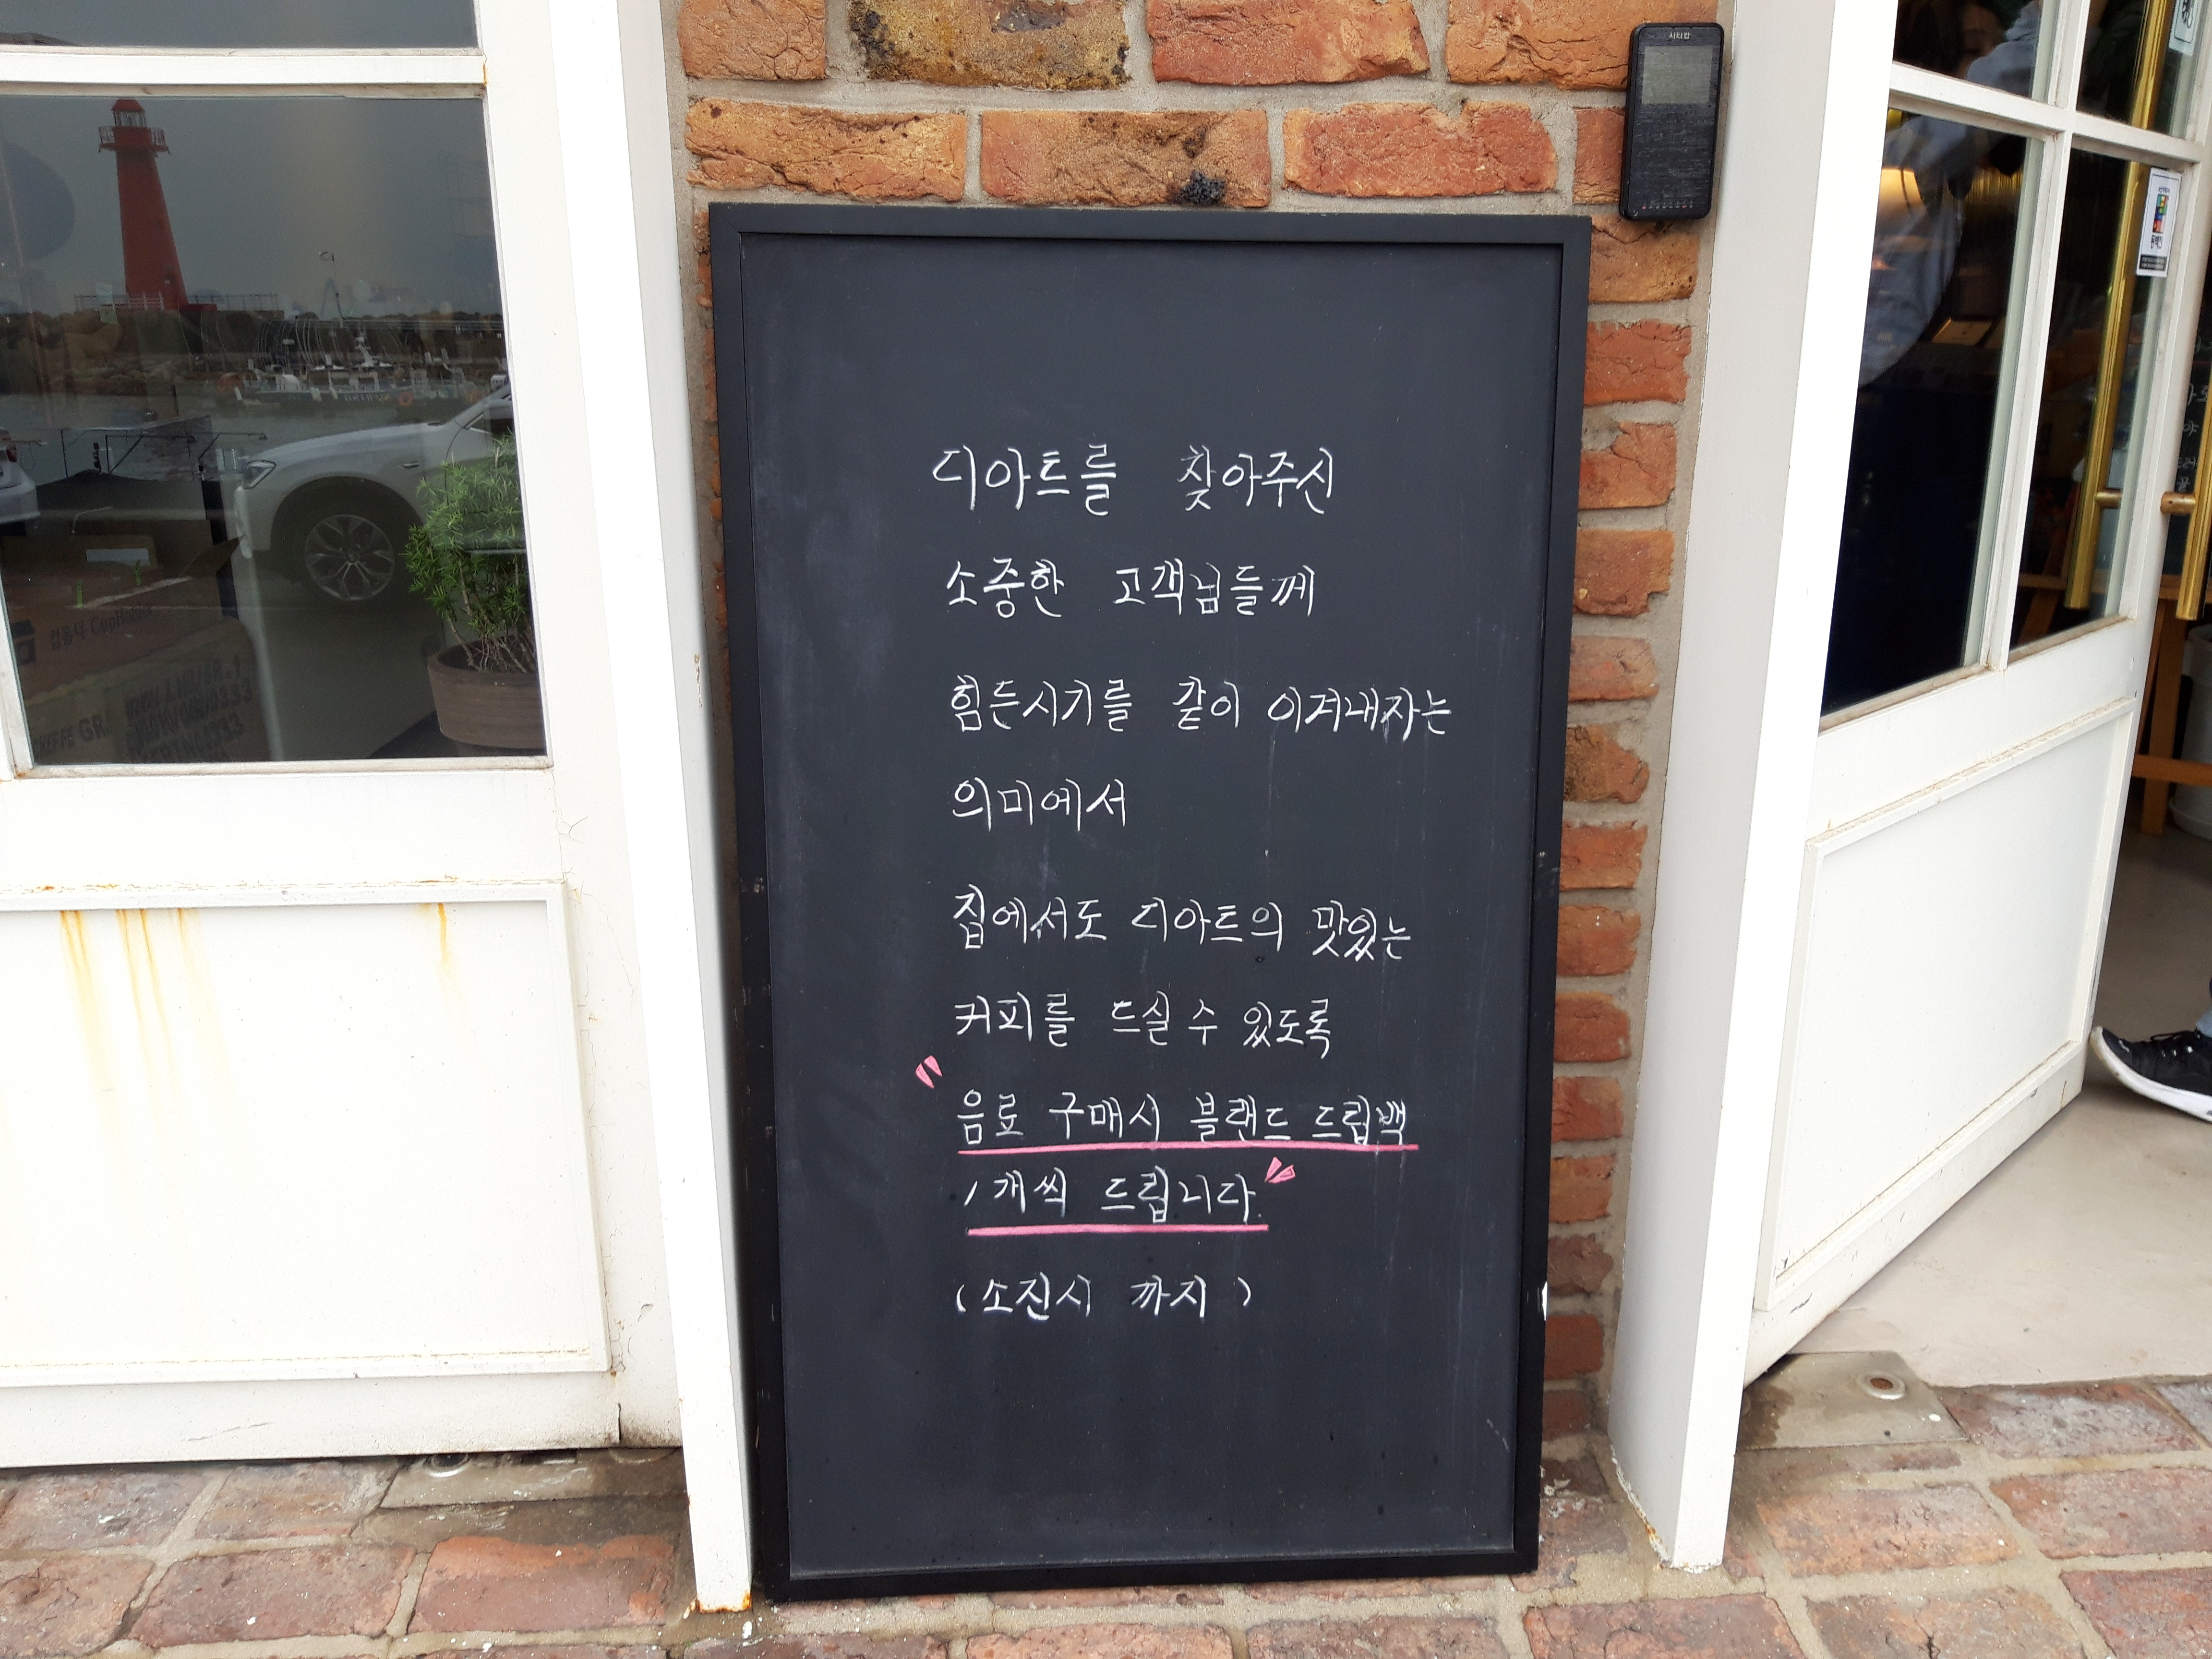 시티캅
디아트를 찾아주신
소중한 고객님들께
힘든시기를 같이 이겨내자는
의미에서
집에서도 디아트의 맛있는
커피를 드실 수 있도록
"음료 구매시 블랜드 드립백
1개씩 드립니다."
(소진시 까지)
컵홀더 CupHolder